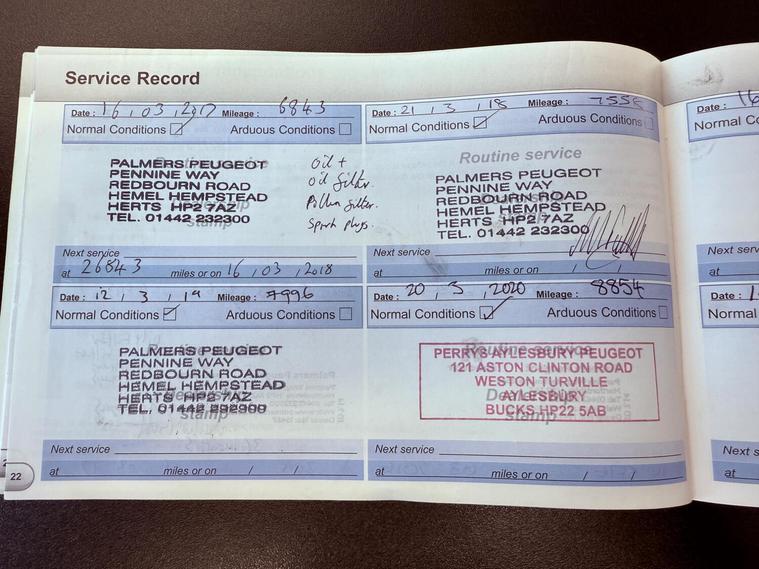 Service Record
Date : 16 / 03 / 2017 Mileage : 6843
Normal Conditions Arduous Conditions
Routine service
PALMERS PEUGEOT
PENNINE WAY
REDBOURN ROAD
HEMEL HEMPSTEAD
HERTS HP2 7AZ
TEL. 01442 232300
stamp
oil +
oil filter.
Pollen filter.
Spark plugs.
Next service
at 26843 miles or on 16 / 03 / 2018
Date : 21 / 3 / 18 Mileage : 7556
Normal Conditions Arduous Conditions
Routine service
PALMERS PEUGEOT
PENNINE WAY
REDBOURN ROAD
HEMEL HEMPSTEAD
HERTS HP2 7AZ
TEL. 01442 232300
stamp
Next service
at miles or on / /
Date : 12 / 3 / 19 Mileage : 7996
Normal Conditions Arduous Conditions
Routine service
PALMERS PEUGEOT
PENNINE WAY
REDBOURN ROAD
HEMEL HEMPSTEAD
HERTS HP2 7AZ
TEL. 01442 232300
Dealership
stamp
Next service
at miles or on / /
Date : 20 / 3 / 2020 Mileage : 8854
Normal Conditions Arduous Conditions
Routine service
PERRYS AYLESBURY PEUGEOT
121 ASTON CLINTON ROAD
WESTON TURVILLE
AYLESBURY
BUCKS HP22 5AB
Dealership
stamp
Next service
at miles or on / /
22
Date : 16
Normal Co
Next serv
at
Date :
Normal
Next s
at